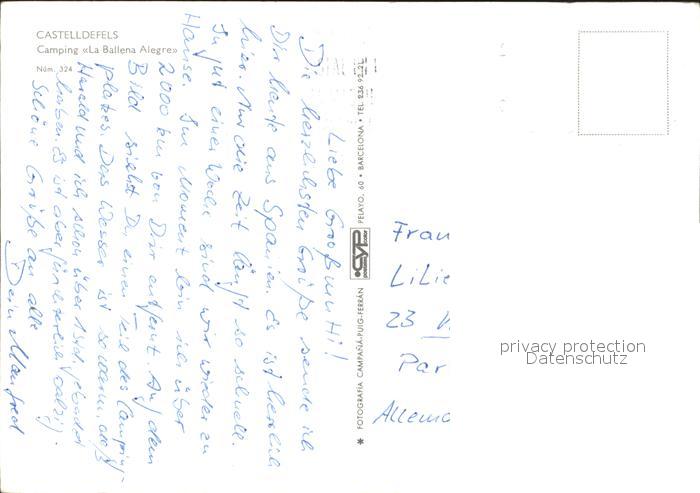 CASTELLDEFELS
Camping «La Ballena Alegre»
Núm. 324
Liebe Großmutti!
Die herzlichsten Grüße sende ich
Dir heute aus Spanien. Es ist herrlich
hier. Nur die Zeit längt so schnell.
In gut einer Woche sind wir wieder zu
Hause. Im Moment bin ich über
2000 km von Dir entfernt. Auf dem
Bild siehst Du einen Teil des Camping-
platzes. Das Wasser ist so warm, daß
Harald und ich schon über 1 Std. gebadet
haben. Es ist aber fürchterlich salzig.
Schöne Grüße an alle
Dein Manfred
✱ FOTOGRAFÍA CAMPAÑÁ-PUIG-FERRÁN CYP PELAYO, 60 • BARCELONA • TEL. 236 92 21
Frau
Lilie
23
Par
Allema
privacy protection
Datenschutz